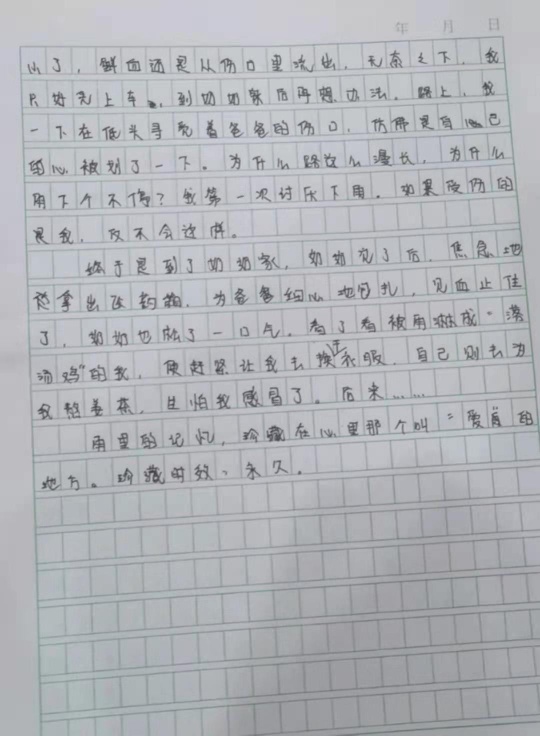 年 月 日
心了，鲜血还是从伤口里流出，无奈之下，我
只好先上车，到奶奶家后再想办法。路上，我
一下在低头寻看着爸爸的伤口，仿佛是自己
的心被划了一下。为什么路这么漫长，为什么
雨下个不停？我第一次讨厌下雨。如果受伤的
是我，反不会这样。
终于是到了奶奶家，奶奶见了后，焦急地
拿出医药箱，为爸爸细心地包扎，见血止住
了，奶奶也松了一口气。看了看被雨淋成“落
汤鸡”的我，便赶紧让我去换衣服，自己则去为
我熬姜茶，生怕我感冒了。后来……
雨里的记忆，珍藏在心里那个叫“爱”的
地方。珍藏时效：永久。